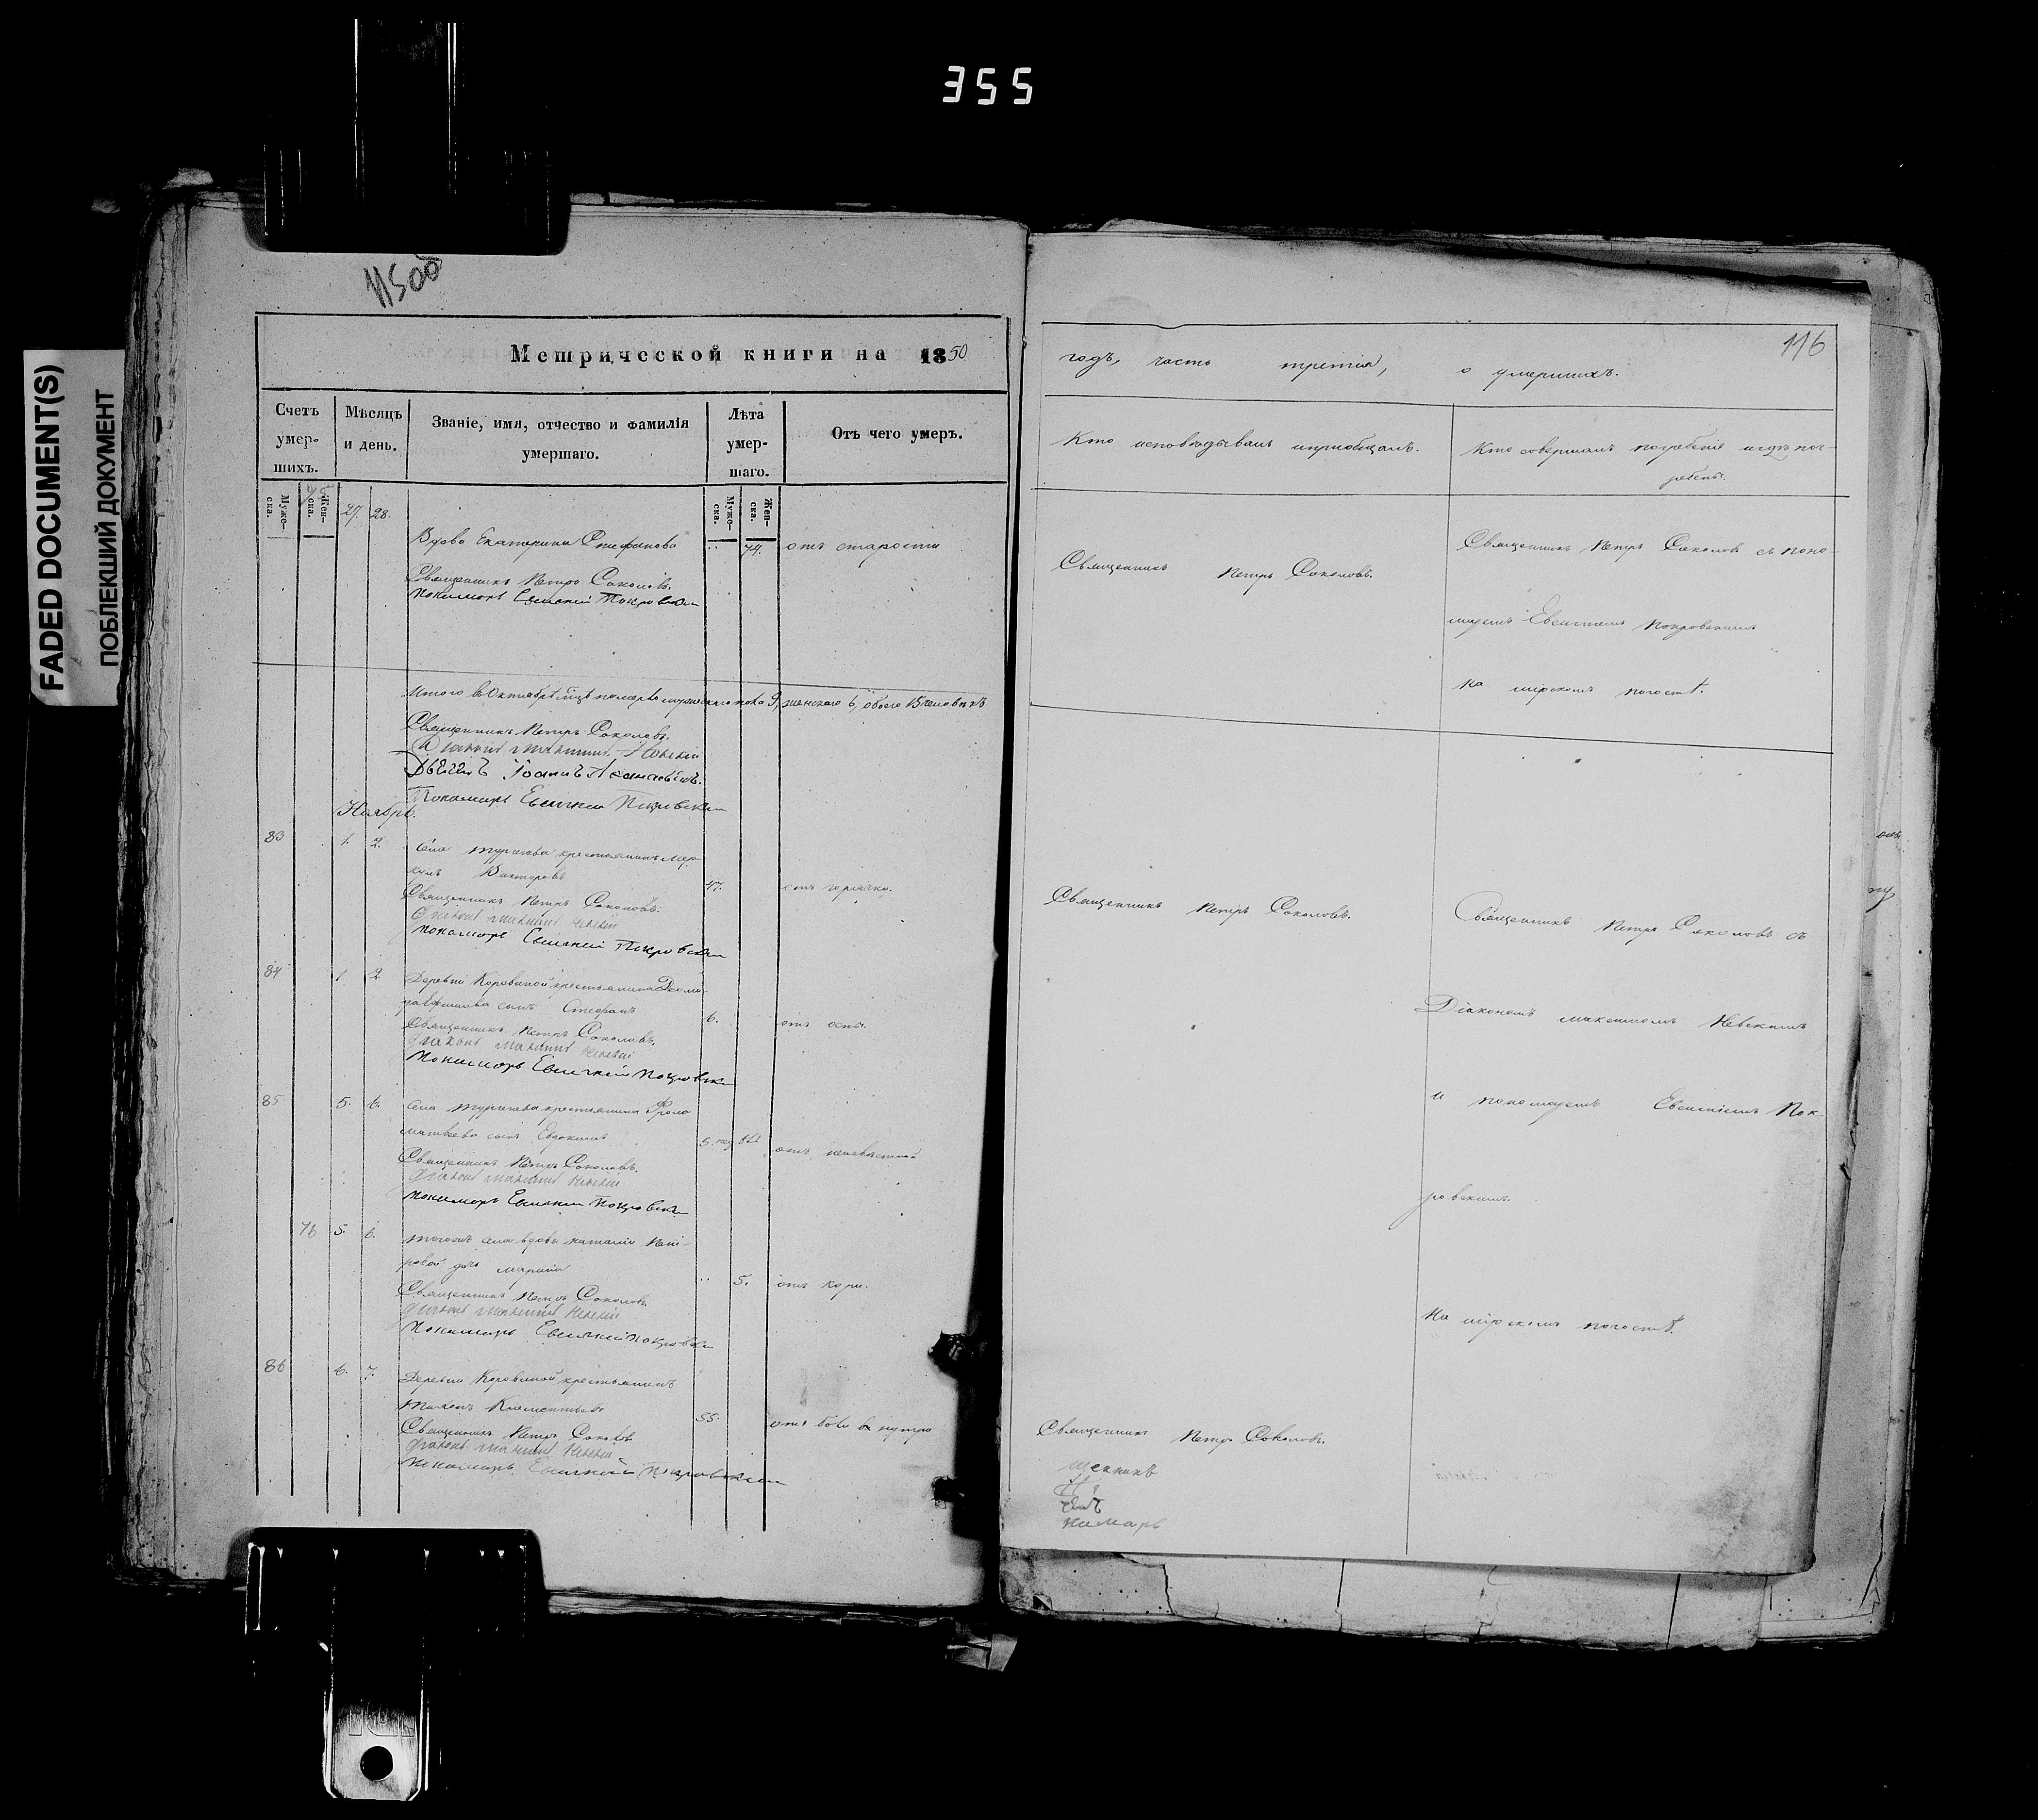 355
FADED DOCUMENT(S)
ПОБЛЕКШИЙ ДОКУМЕНТ
11500
Метрической книги на 1850
Счетъ умер-шихъ.
Мѣсяцъ и день.
Званіе, имя, отчество и фамилія умершаго.
Лѣта умер-шаго.
Отъ чего умеръ.
Муже-ска. Жен-ска.
Муже-ска. Жен-ска.
75 27. 28.
Вдова Екатерина Стефанова 74. отъ старости
Священникъ Петръ Соколовъ.
Пономарь Евсигній Покровскій
Итого въ Октябрѣ мцѣ померло мужескаго пола 9, женскаго 6, обоего 15 человѣкъ
Священникъ Петръ Соколовъ.
Діаконъ Максимъ Невскій
Іоаннъ
Пономарь Евсигній Покровскій
Ноябрь.
83 1. 2. Села крестьянинъ
47. отъ горячки.
Священникъ Петръ Соколовъ.
Діаконъ Максимъ Невскій
Пономарь Евсигній Покровскій
84 1. 2. Деревни Коровиной крестьянина
сынъ Стефанъ 6. отъ оспы.
Священникъ Петръ Соколовъ.
Діаконъ Максимъ Невскій
Пономарь Евсигній Покровскій
85 5. 6. Села крестьянина Фрола
Матвѣева сынъ Евдокимъ 5. нед отъ неизвѣстной
Священникъ Петръ Соколовъ.
Діаконъ Максимъ Невскій
Пономарь Евсигній Покровскій
76 5. 6. Тогожъ села вдовы Наталіи Пет-
ровой дочь Марина 5. отъ кори.
Священникъ Петръ Соколовъ
Діаконъ Максимъ Невскій
Пономарь Евсигній Покровскій
86 6. 7. Деревни Коровиной крестьянинъ
55. отъ боли въ нутри
Священникъ Петръ Соколовъ
Діаконъ Максимъ Невскій
Пономарь Евсигній Покровскій
116
годъ, часть третія, о умершихъ.
Кто исповѣдывалъ и пріобщалъ.
Кто совершалъ погребеніе и гдѣ пог-
ребены.
Священникъ Петръ Соколовъ.
Священникъ Петръ Соколовъ съ поно-
маремъ Евсигніемъ Покровскимъ
на мірскомъ погостѣ.
Священникъ Петръ Соколовъ.
Священникъ Петръ Соколовъ съ
Діакономъ Максимомъ Невскимъ
и пономаремъ Евсигніемъ Пок-
ровскимъ.
на мірскомъ погостѣ.
Священникъ Петръ Соколовъ.
щенникъ
номарь